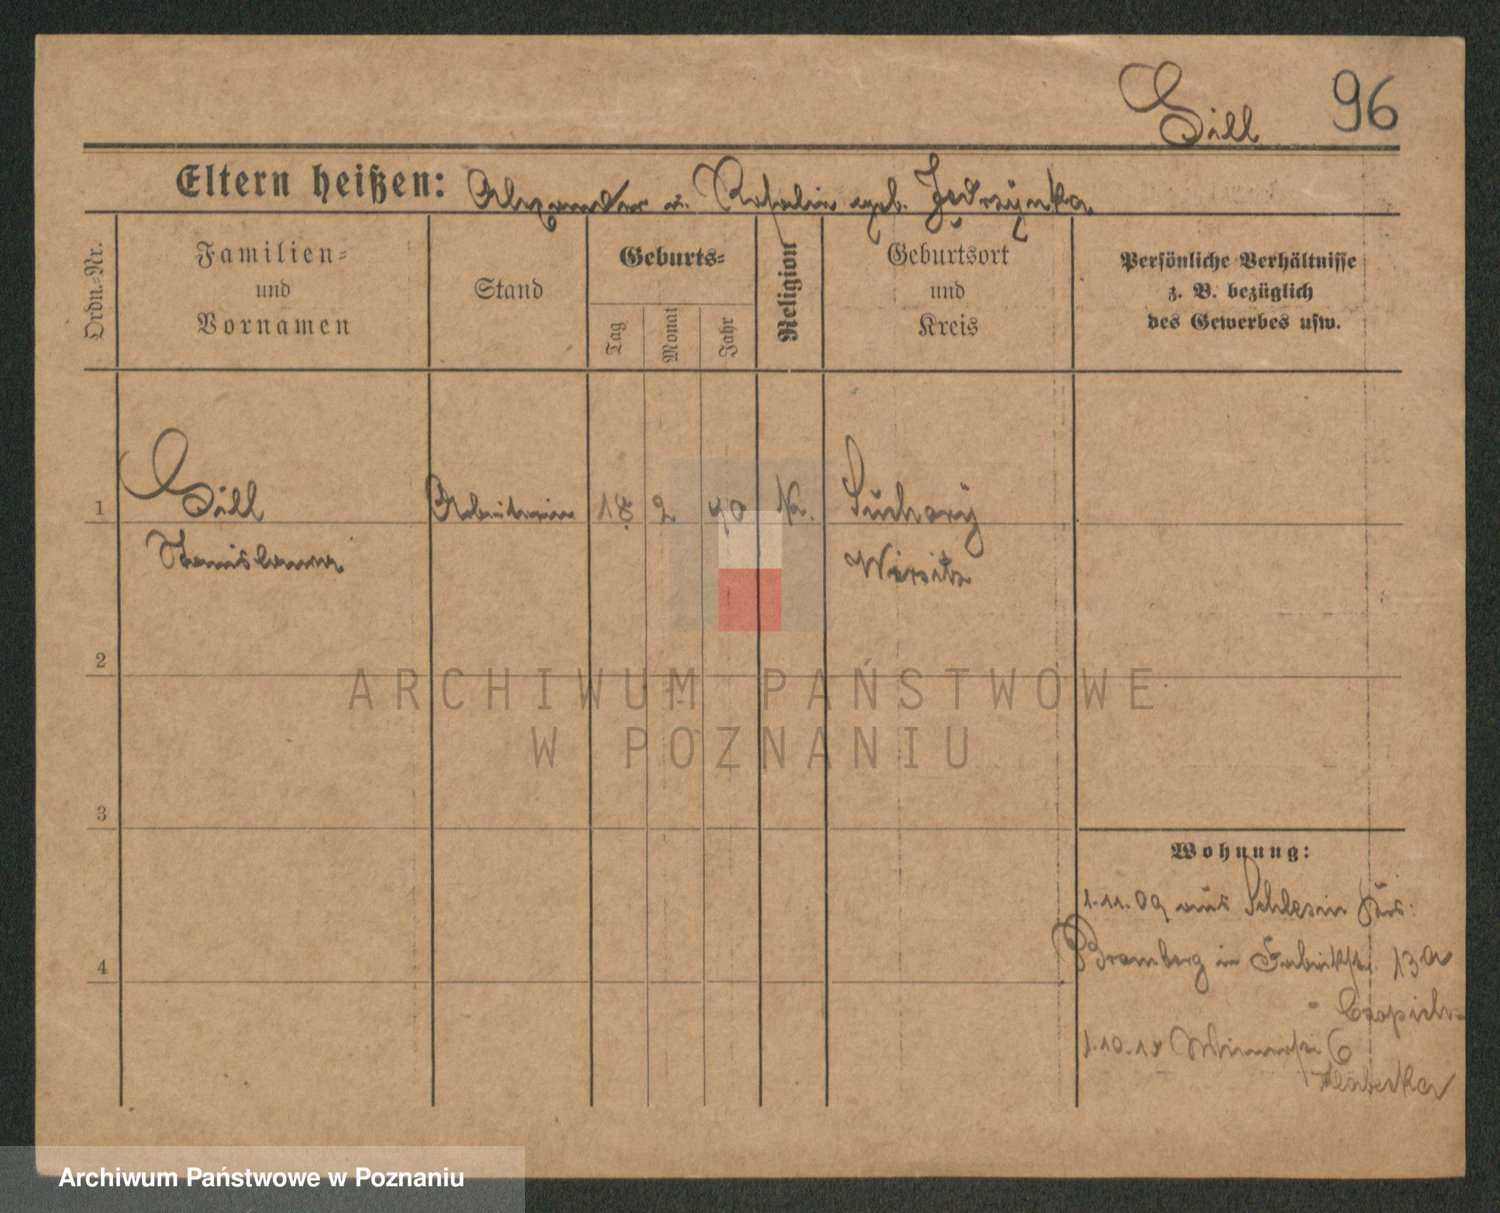 Sill 96
Eltern heißen: Alexander u. Rosalie geb. Jedrzynka
Ordn.-Nr.
Familien-
und
Vornamen
Stand
Geburts-
Tag
Monat
Jahr
Religion
Geburtsort
und
Kreis
Persönliche Verhältnisse
z. B. bezüglich
des Gewerbes usw.
1 Sill Arbeiterin 18 2 90 Suchary
Stanislawa Wirsitz
2
ARCHIWUM PAŃSTWOWE
W POZNANIU
3
Wohnung:
1.11.09 aus Schlesin Krs.
4 Bromberg in Fabrikstr. 13a
1.10.18 6
Archiwum Państwowe w Poznaniu